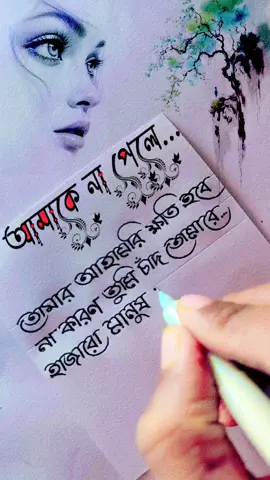 আমাকে না পেলে...
তোমার আহামরি ক্ষতি হবে
না কারণ তুমি চাঁদ তোমারে...
হাজারো মানুষ